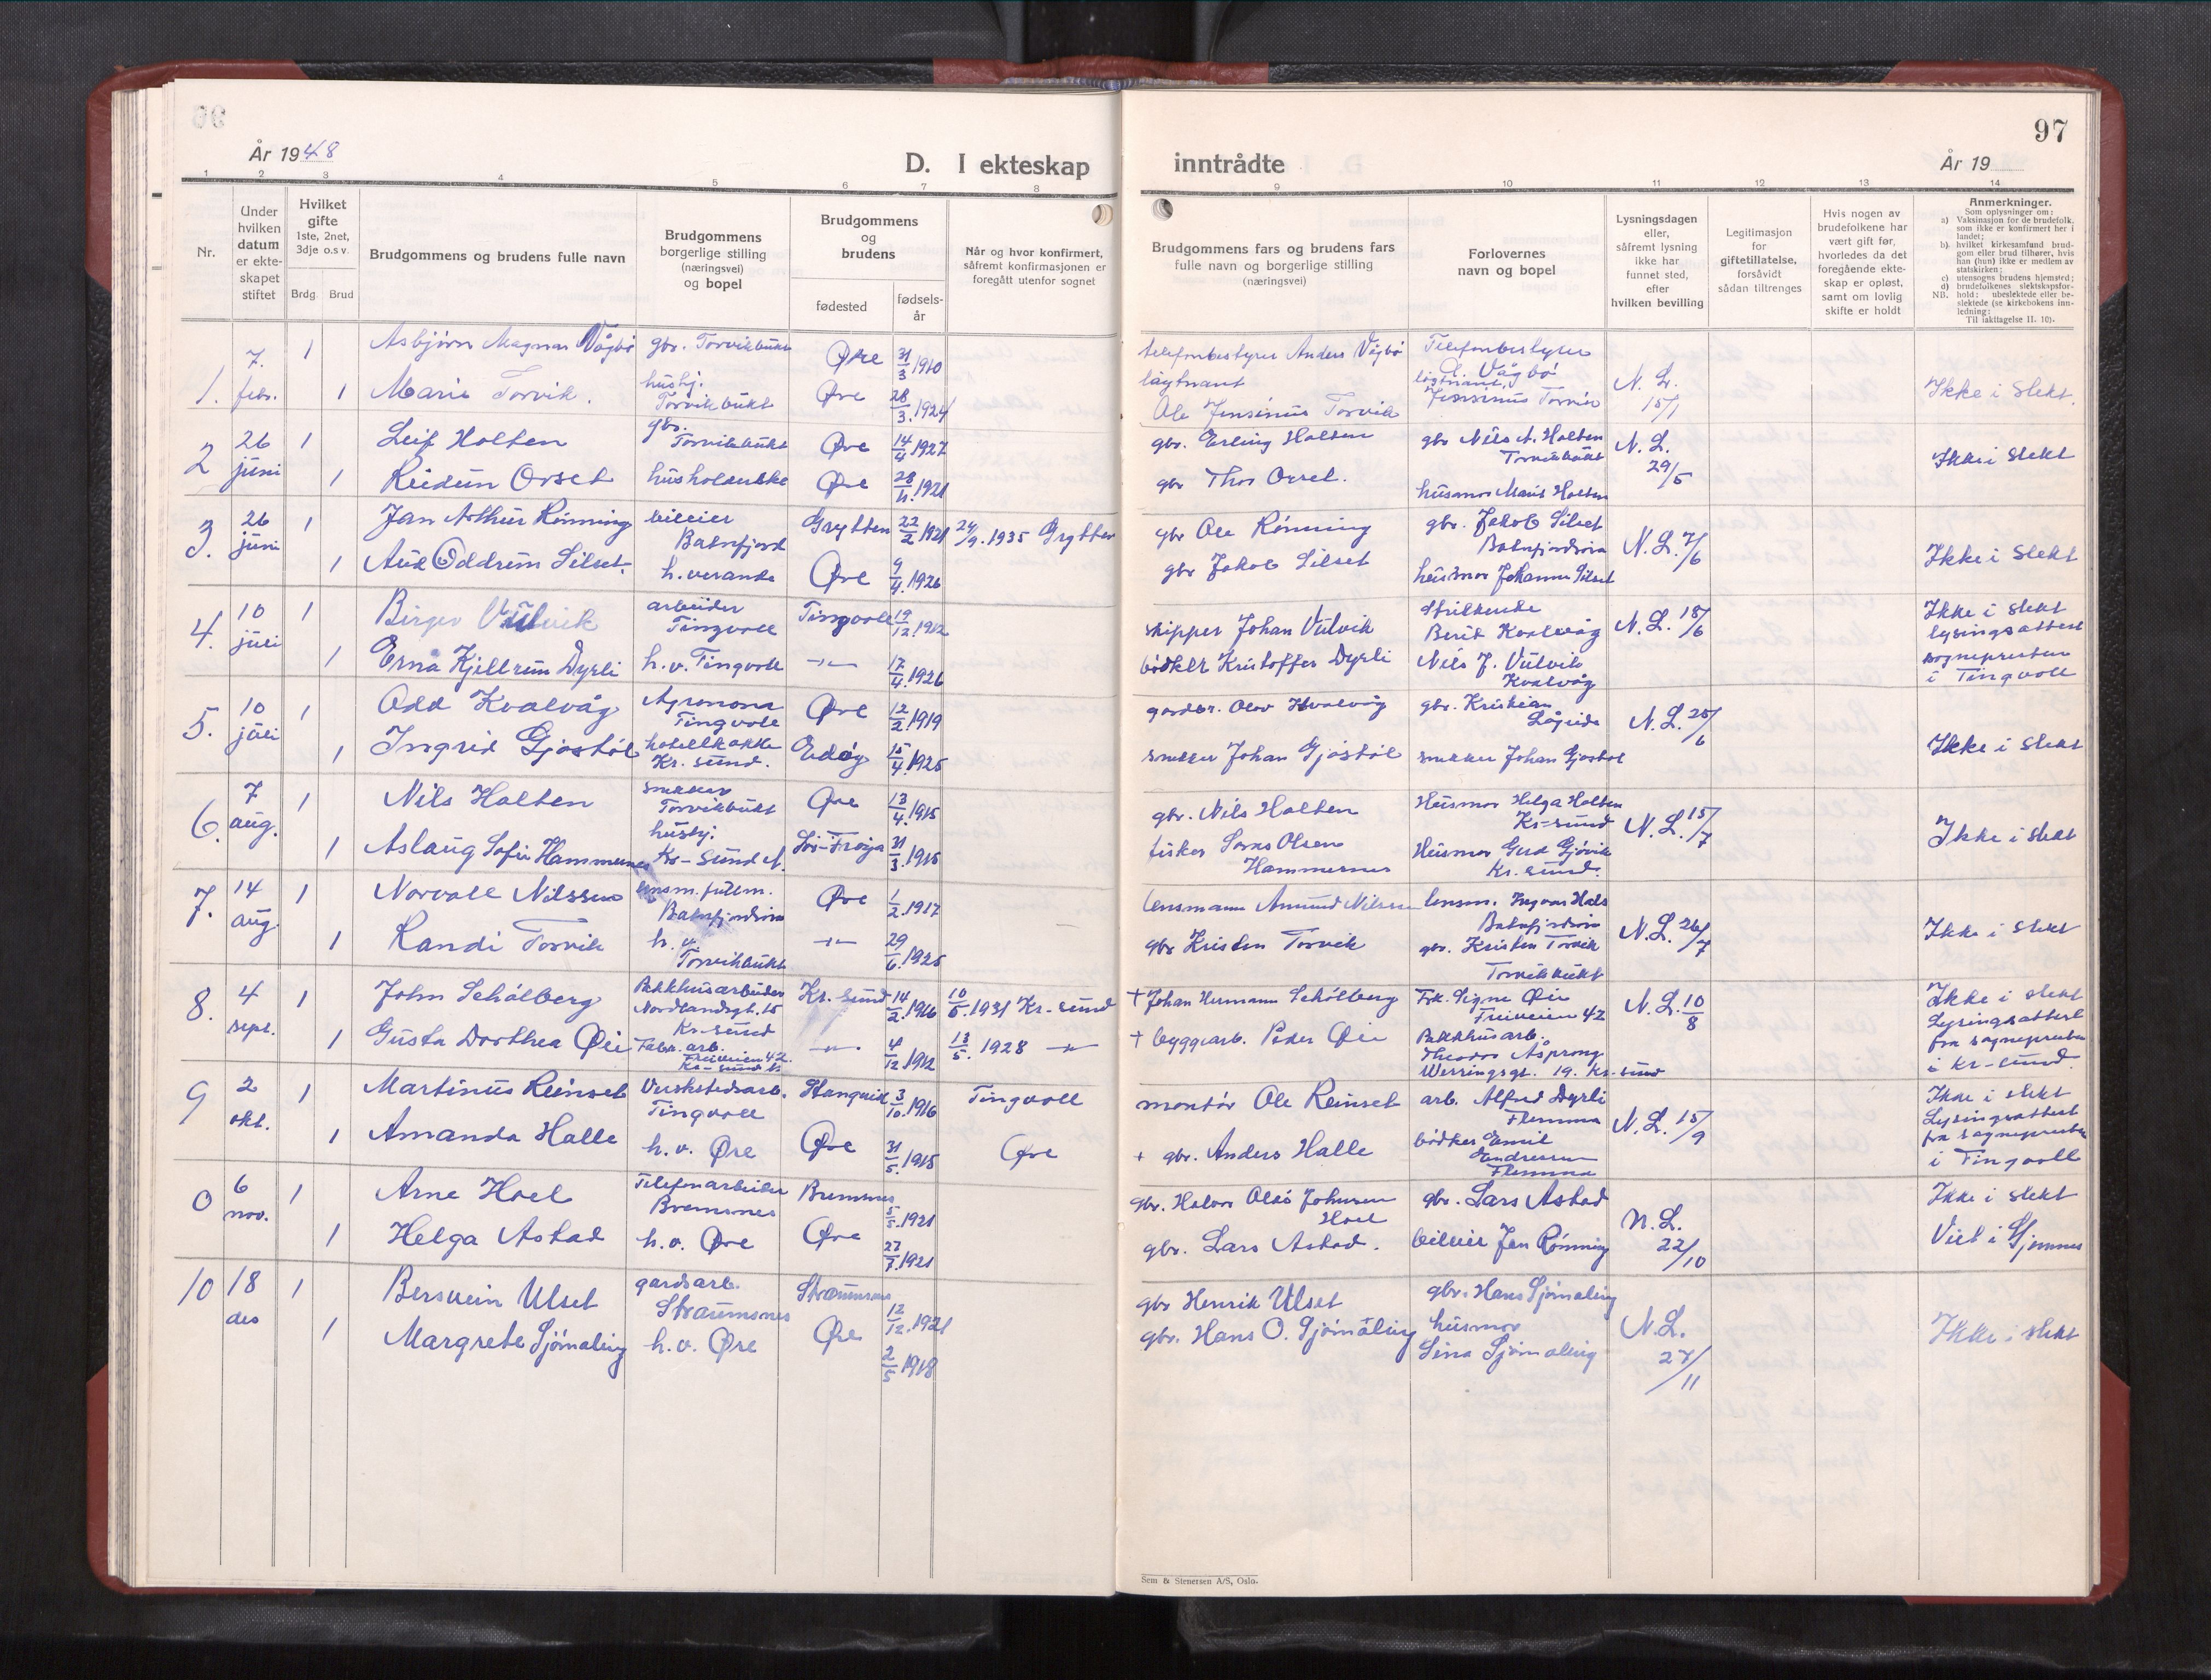 97
År 1948
D. I ekteskap inntrådte
År 19
1 2 3 4 5 6 7 8 9 10 11 12 13 14
Nr.
Under hvilken datum er ekteskapet stiftet
Hvilket gifte 1ste, 2net, 3dje o.s.v.
Brdg. Brud
Brudgommens og brudens fulle navn
Brudgommens borgerlige stilling (næringsvei) og bopel
Brudgommens og brudens
fødested
fødselsår
Når og hvor konfirmert, såfremt konfirmasjonen er foregått utenfor sognet
Brudgommens fars og brudens fars fulle navn og borgerlige stilling (næringsvei)
Forlovernes navn og bopel
Lysningsdagen eller, såfremt lysning ikke har funnet sted, efter hvilken bevilling
Legitimasjon for giftetillatelse, forsåvidt sådan tiltrenges
Hvis nogen av brudefolkene har vært gift før, hvorledes da det foregående ekteskap er opløst, samt om lovlig skifte er holdt
Anmerkninger.
Som oplysninger om:
a) Vaksinasjon for de brudefolk, som ikke er konfirmert her i landet;
b) hvilket kirkesamfund brudgom eller brud tilhører, hvis han (hun) ikke er medlem av statskirken;
c) utensogns brudens hjemsted;
d) brudefolkenes slektskapsforhold: ubeslektede eller beslektede (se kirkebokens innledning;
NB. Til iakttagelse II. 10).
1. 7. febr. 1 Asbjørn Magnar Vågbø gbr. Torvikbukt Øre 31/3 1910 telefonbestyrer Anders Vågbø Telefonbestyrer A. Vågbø
1 Marie Torvik. hushj. Torvikbukt Øre 28/3. 1924 løytnant Ole Jensinus Torvik løytnant Jensinus Torvik N. L. 15/1 Ikke i slekt.
2 26 juni 1 Leif Holten gbr. Torvikbukt Øre 14/4 1927 gbr. Erling Holten gbr Nils A. Holten Torvikbukt N. L. 29/5 Ikke i slekt
1 Reidun Orset husholderske Øre 1921 gbr Thor Orset. husmor Marit Holten
3. 26 juni 1 Jan Arthur Rønning bileier Batnfjord Grytten 22/2 1921 24/9. 1935 Grytten gbr Ole Rønning gbr. Jakob Silset Batnfjordsøra N. L. 7/6 Ikke i slekt
1 Aud Oddrun Silset. h. verande Øre 9/4. 1926 gbr Jakob Silset husmor Johanna Silset
4. 10 juli 1 Birger Vulvik arbeider Tingvoll Tingvoll 19/12. 1912 skipper Johan Vulvik Berit Kvalvåg N. L. 18/6 Ikke i slekt lysingsattest sognepresten i Tingvoll
1 Erna Kjellrun Dyrli h. v. Tingvoll -"- 17/4. 1926 bødker Kristoffer Dyrli Nils J. Vulvik Kvalvåg
5. 10 juli 1 Odd Kvalvåg Agronom Tingvoll Øre 12/2 1919 gardbr. Olav Kvalvåg gbr. Kristian N. L. 25/6 Ikke i slekt
1 Ingrid Gjøstøl hotellkokke Kr. sund. Edøy 15/4. 1925 snekker Johan Gjøstøl snekker Johan Gjøstøl
6. 7 aug. 1 Nils Holten snekker Torvikbukt Øre 13/4. 1915 gbr. Nils Holten Husmor Helga Holten Kr-sund N. L. 15/7 Ikke i slekt
1 Aslaug Sofie Hammernes hushj. Kr-sund N. Sør-Frøya 31/3. 1915 fisker Olsen Hammernes Husmor Gerd Gjøvik Kr. sund.
7. 14 aug. 1 Norvall Nilssen lensm. fullm. Batnfjordsøra Øre 1/2. 1917 lensmann Amund Nilssen lensm. Ingvar Hals Batnfjordsøra N. L. 26/7 Ikke i slekt
1 Randi Torvik h. v. Torvikbukt -"- 29/6. 1925 gbr Kristen Torvik gbr. Kristen Torvik Torvikbukt
8. 4 sept. 1 John Schølberg Pakkhusarbeider Nordlandsgt. 15 Kr-sund Kr. sund 14/2. 1916 10/5. 1931 Kr-sund + Johan Hermann Schølberg Frk. Signe Øie Freiveien 42 N. L. 10/8 Ikke i slekt Lysingsattest fra sognepresten i Kr-sund.
1 Gusta Dorthea Øie Fabr. arb. Freiveien 42. Kr-sund N. -"- 4/12 1912 13/5. 1928 -"- + byggearb. Peder Øie Pakkhusarb. Theodor Asprong Werringsgt. 19. Kr-sund
9 2 okt. 1 Martinus Reinset Verkstedsarb. Tingvoll Stangvik 3/10. 1916 Tingvoll montør Ole Reinset arb. Alfred Dyrli Flemma N. L. 15/9 Ikke i slekt Lysingsattest fra sognepresten i Tingvoll
1 Amanda Halle h. v. Øre Øre 31/5. 1915 Øre + gbr. Anders Halle bødker Emil Endresen Flemma
0 6 nov. 1 Arne Hoel Telefonarbeider Bremsnes Bremsnes 5/5. 1921 gbr. Halvor Olai Johnsen Hoel gbr. Lars Astad N. L. 22/10 Ikke i slekt
1 Helga Astad h. v. Øre Øre 27/7. 1921 gbr. Lars Astad. bileier Jan Rønning Viet i Gjemnes
10 18 des 1 Bersvein Ulset gardsarb. Straumsnes Straumsnes 12/12. 1921 gbr Henrik Ulset gbr. Hans Sjømæling N. L. 27/11 Ikke i slekt
1 Margrete Sjømæling h. v. Øre Øre 2/5 1918 gbr. Hans O. Sjømæling husmor Lina Sjømæling
Sem & Stenersen A/S, Oslo.